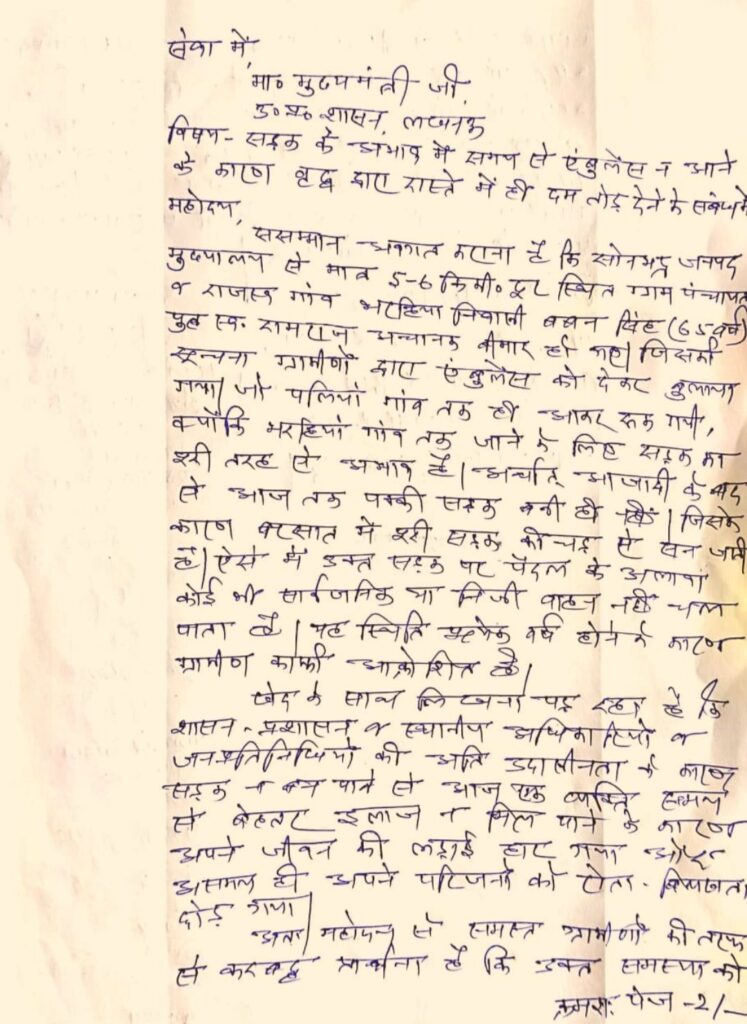 सेवा में,
मा० मुख्यमंत्री जी,
उ०प्र० शासन, लखनऊ
विषय- सड़क के अभाव में समय से एंबुलेंस न आने
के कारण वृद्ध द्वारा रास्ते में ही दम तोड़ देने के संबंध में
महोदय,
ससम्मान अवगत कराना है कि सोनभद्र जनपद
मुख्यालय से मात्र 5-6 कि.मी. दूर स्थित ग्राम पंचायत
व राजस्व गांव भरहिया निवासी बचन सिंह (65 वर्ष)
पुत्र स्व. रामराज अचानक बीमार हो गए। जिसकी
सूचना ग्रामीणों द्वारा एंबुलेंस को देकर बुलाया
गया। जो पलियां गांव तक ही आकर रूक गयी,
क्योंकि भरहियां गांव तक जाने के लिए सड़क का
पूरी तरह से अभाव है। अर्थात् आजादी के बाद
से आज तक पक्की सड़क बनी ही नहीं। जिसके
कारण बरसात में पूरी सड़क कीचड़ से सन जाती
है। ऐसे में उक्त सड़क पर पैदल के अलावां
कोई भी सार्वजनिक या निजी वाहन नहीं चल
पाता है। यह स्थिति प्रत्येक वर्ष होने के कारण
ग्रामीण काफी आक्रोशित है।
खेद के साथ लिखना पड़ रहा है कि
शासन-प्रशासन व स्थानीय अधिकारियों व
जनप्रतिनिधियों की अति उदासीनता के कारण
सड़क न बन पाने से आज एक व्यक्ति समय
से बेहतर इलाज न मिल पाने के कारण
अपने जीवन की लड़ाई हार गया और
असमय ही अपने परिजनों को रोता-बिलखता
छोड़ गया।
अतः महोदय से समस्त ग्रामीणों की तरफ
से करबद्ध प्रार्थना है कि उक्त समस्या को
क्रमशः पेज -2/-